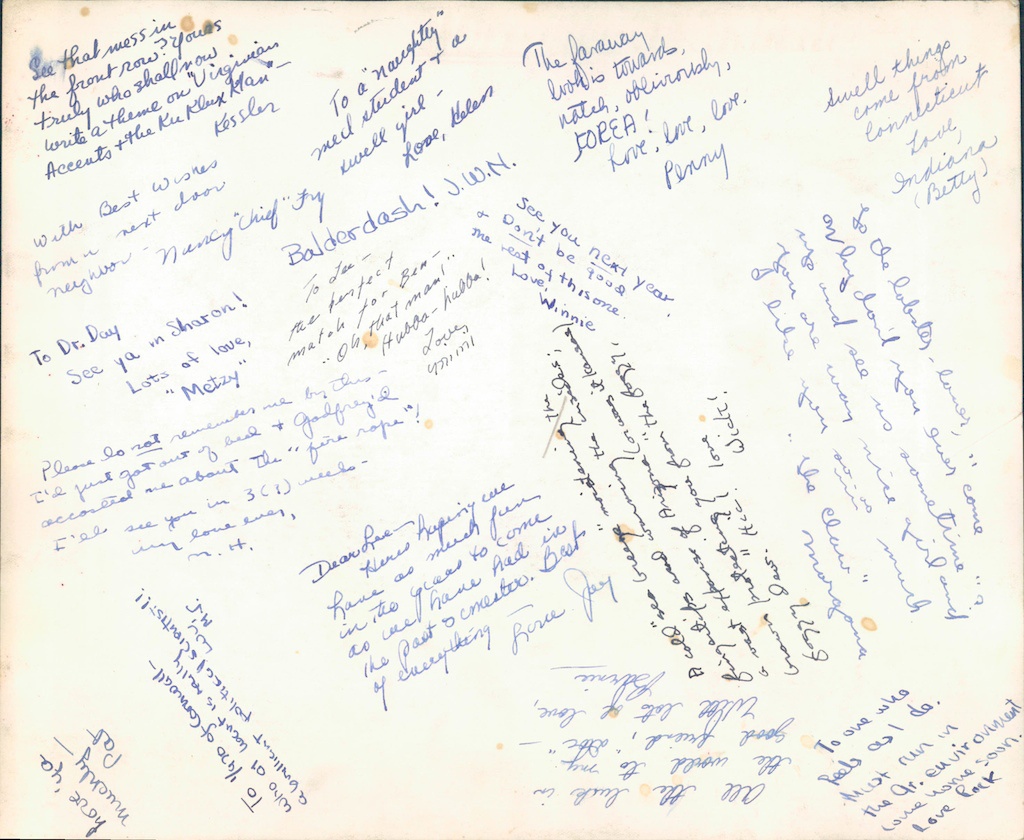 See that mess in
the front row? Yours
truly who shall now
write a theme on "Virginian
Accents & the Ku Klux Klan" -
Kessler
To a "naughty"
med student & a
swell girl -
Love, Helen
The faraway
look is towards,
natch, obliviously,
KOREA!
Love, love, love.
Penny
Swell things
come from
Connecticut
Love,
Indiana
(Betty)
With Best Wishes
from a next door
neighbor - Nancy "Chief" Fry
Balderdash! J.W.N.
See you next year
& Don't be good
the rest of this one.
Love, Winnie
To Lee -
the perfect
match for Ben -
"Oh, that man!"
Hubba-hubba!
Love,
To Dr. Day
See ya in Sharon!
Lots of love,
"Metzy"
Please do not remember me by this -
I'd just got out of bed & Godfrey'd
accosted me about the "fire rope"!
I'll see you in 3(?) weeks -
my love ever,
N. H.
Dear Lee -
Here's hoping we
have as much fun
in the years to come
as we have had in
the past semester. Best
of everything
Love Joy
To the lobster-lover, "come
on, why don't you ever
up and see us sometime"?
You are way nice girl and
I like you much
"the claw"
A cold sea voyage
Foggy Days.
love
Vicki
To
of Cornwall -
who at heart is really
a brilliant political scientist!!!
M.J.
have 'ya
muchly -
Pat
All the luck in
the world to my
good friend,
With lots of love,
Bernie -
To one who
feels as I do.
Must run in
the Gr. environment
Come home soon.
Love